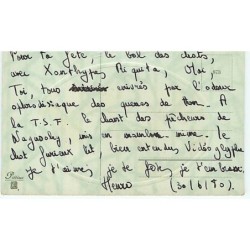 Pour ta fête, le bal des chats,
avec Xanthype, Aïquita, Moi,
Toi, tous enivrés par l'odeur
aphrodisiaque des queues de thon. A
la T.S.F. le chant des pêcheurs de
Nagasaky, mis en mine. Le
chat furieux lit bien entendu Vidéoglyphe
je t'aime, je te fête, je t'embrasse.
(30/6/90).